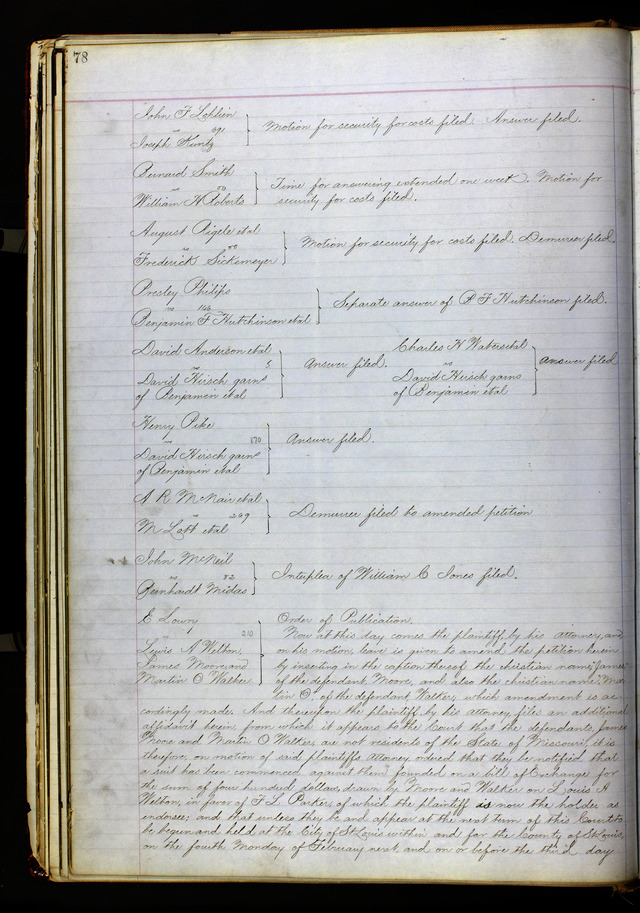 78
John F Lohlein
vs 691
Joseph Kuntz
Motion for security for costs filed. Answer filed.
Bernard Smith
vs 50
William H Roberts
Time for answering extended one week. Motion for
security for costs filed.
August Pigele et al
vs
Frederick Sickemeyer
Motion for security for costs filed. Demurrer filed.
Presley Philips
vs 146
Benjamin F Hutchinson et al
Separate answer of F Hutchinson filed.
David Anderson et al
vs 5
David Hirsch garns
of Benjamin et al
Answer filed.
Charles H et al
vs
David Hirsch garns
of Benjamin et al
Answer filed
Henry Pike
vs 170
David Hirsch garns
of Benjamin et al
Answer filed.
A R McNair et al
vs 249
M Latt et al
Demurrer filed to amended petition
John McNeil
vs 82
Gernhardt Midas
Interplea of William C Jones filed.
E Lowry
vs 210
Lewis A Welton,
James Moore, and
Martin O Walker
Order of Publication.
Now at this day comes the plaintiff by his attorney, and
on his motion, leave is given to amend the petition herein
by inserting in the caption thereof the christian name "James"
of the defendant Moore, and also the christian name "Mar
tin O" of the defendant Walker, which amendment is ac
cordingly made. And thereupon the plaintiff by his attorney, files an additional
affidavit herein, from which it appears to the Court that the defendants, James
Moore and Martin O Walker, are not residents of the State of Missouri, it is
therefore, on motion of said plaintiffs attorney ordered that they be notified that
a suit has been commenced against them founded on a bill of Exchange for
the sum of four hundred dollars, drawn by Moore and Walker on Louis A
Welton, in favor of F. L. Parker, of which the plaintiff is now the holder as
endorsee; and that unless they be and appear at the next term of this Court to
be begun and held at the City of St Louis within and for the County of St Louis,
on the fourth Monday of February next, and on or before the third day